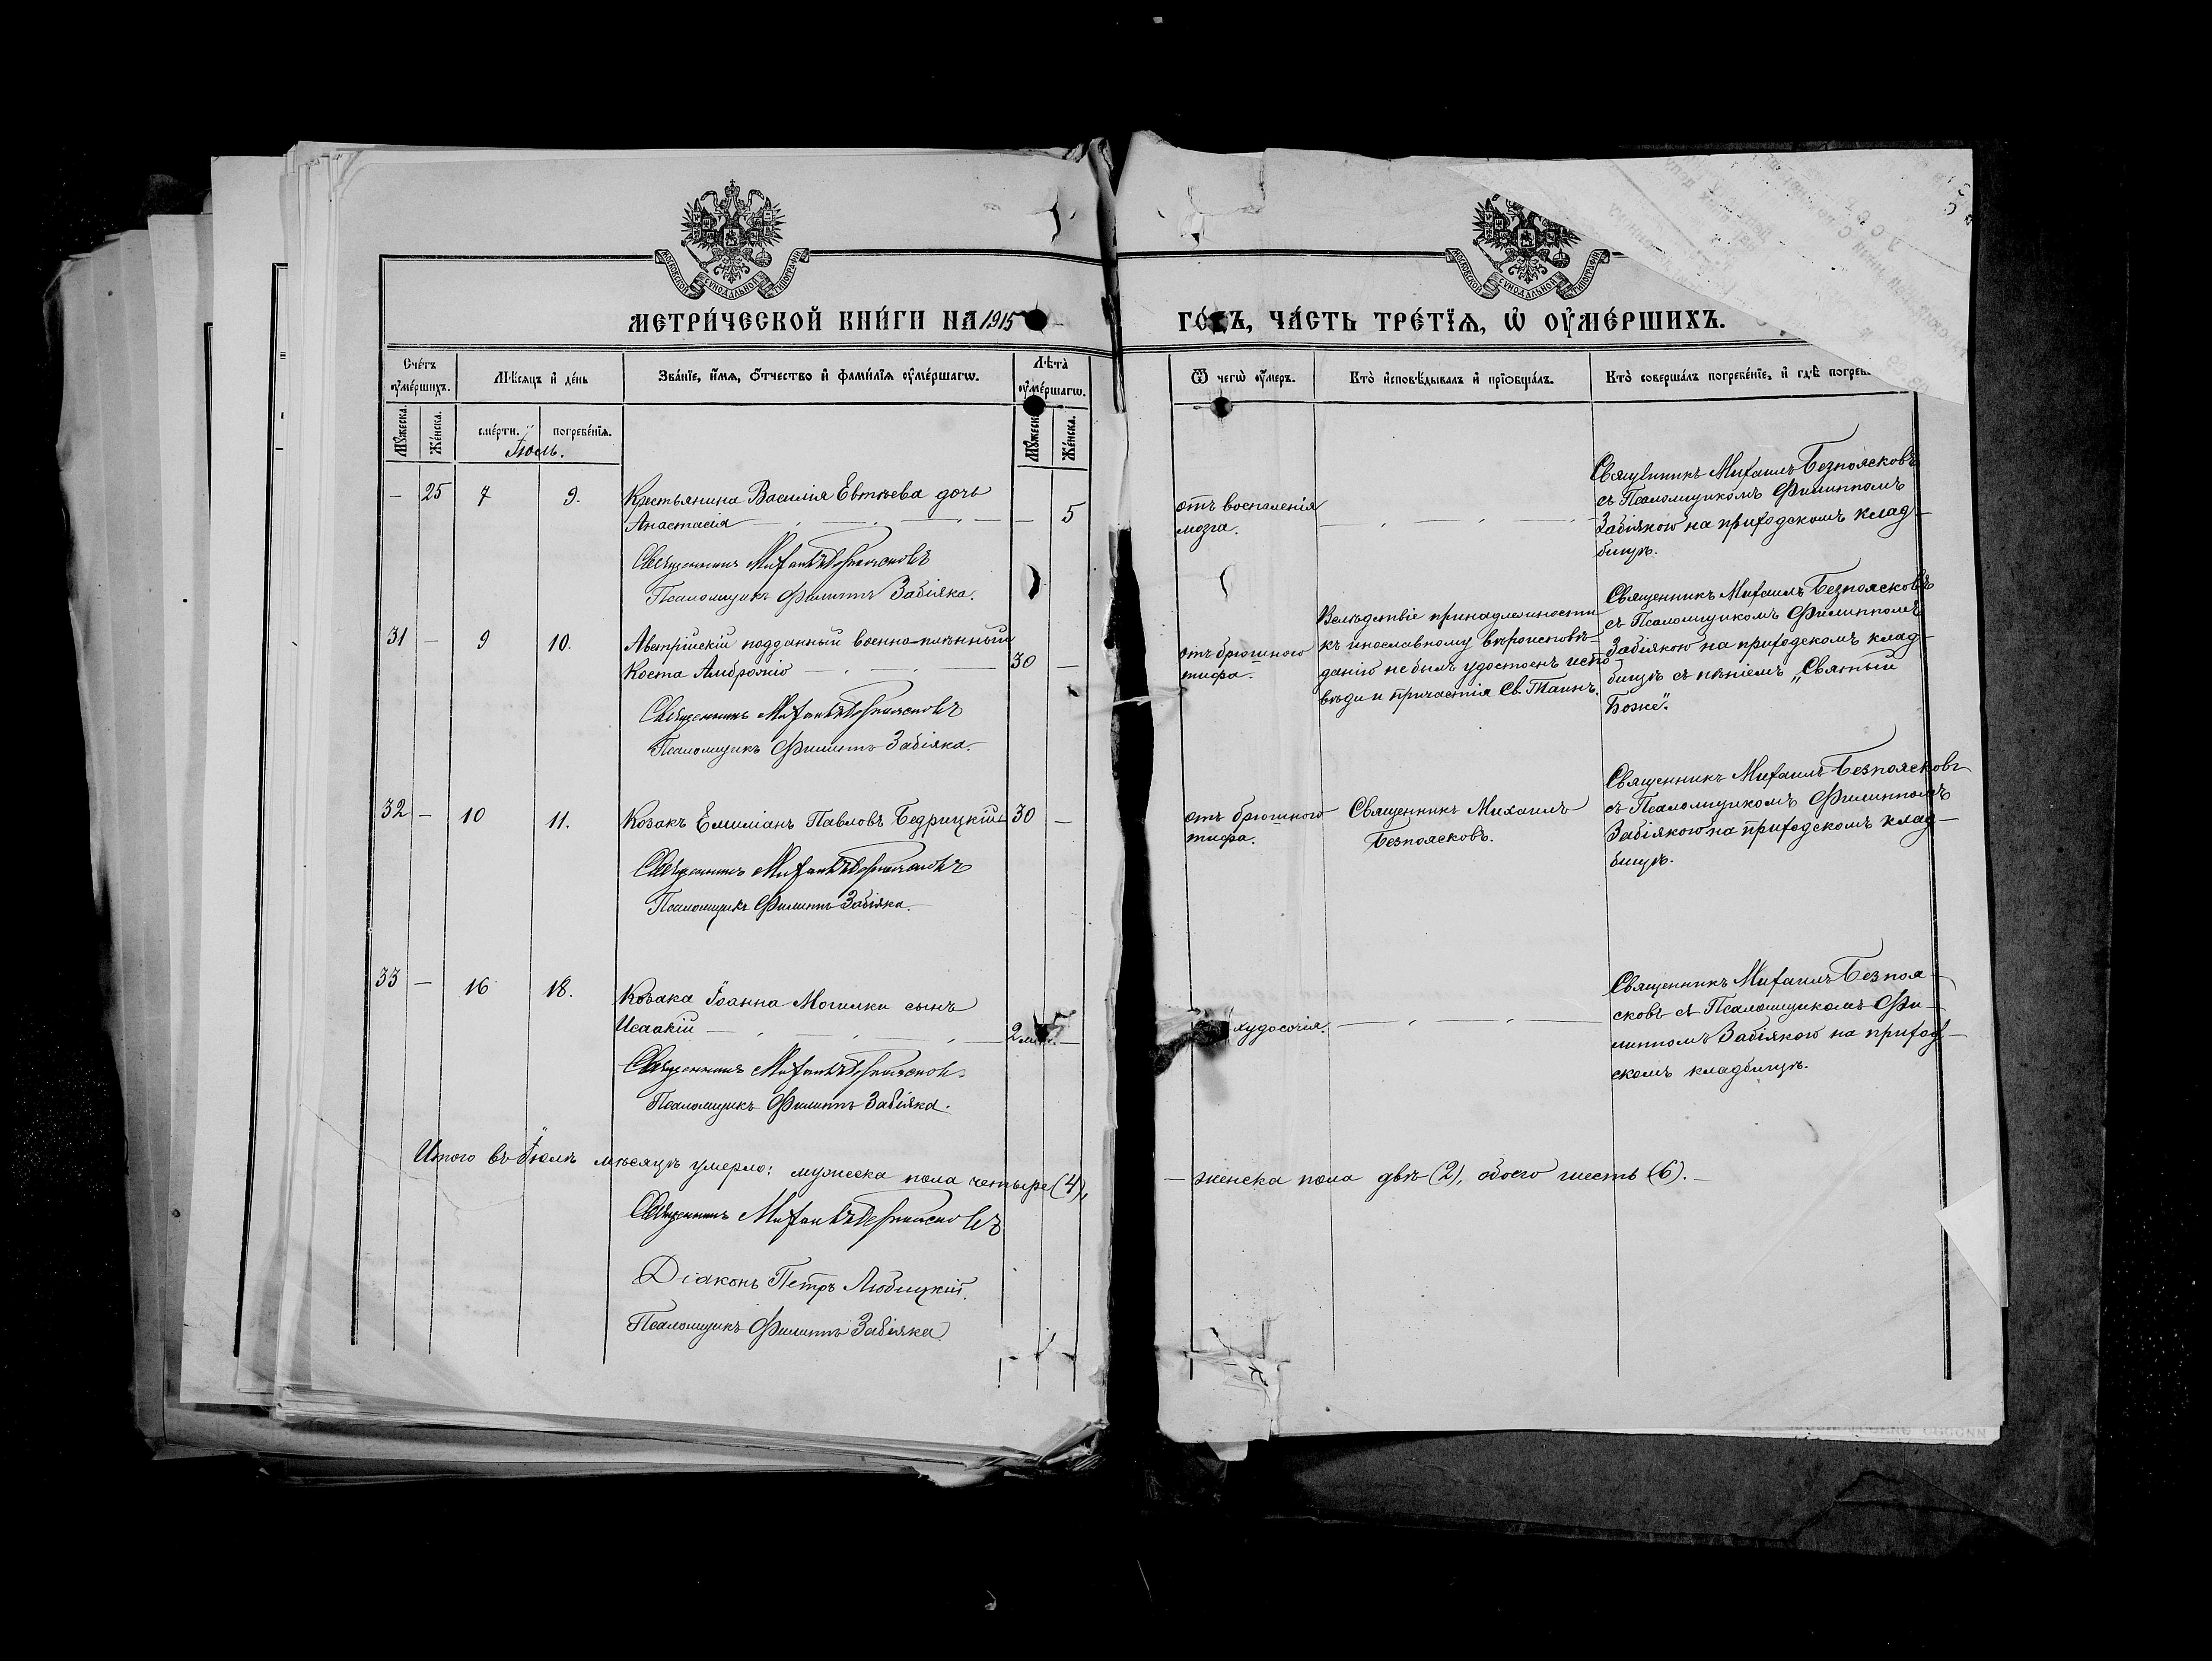 МОСКОВСКОЙ СѴНОДАЛЬНОЙ ТИПОГРАФІИ
МОСКОВСКОЙ СѴНОДАЛЬНОЙ ТИПОГРАФІИ
МЕТРИ́ЧЕСКОЙ КНИ́ГИ НА 1915
ГО́ДЪ, ЧА́СТЬ ТРЕ́ТЇѦ, Ѡ҆ ОУ҆МЕ́РШИХЪ.
Сче́тъ оу҆ме́ршихъ.
Мꙋ́жеска.
Же́нска.
Мѣ́сѧцъ и҆ де́нь
сме́рти.
погребе́нїѧ.
Зва́нїе, и҆́мѧ, ѻ҆́тчество и҆ фами́лїѧ оу҆ме́ршагѡ.
Лѣ́та̀ оу҆ме́ршагѡ.
Мꙋ́жеска
Же́нска.
Ѿ чегѡ̀ оу҆́меръ.
Кто̀ и҆сповѣ́дывалъ и҆ прїѻбща́лъ.
Кто̀ соверша́лъ погребе́нїе, и҆ гдѣ̀ погребе
Іюль.
— 25 7 9. Крестьянина Василія Евтѣева дочь
Анастасія — 5
Священникъ Михаилъ Безпоясковъ
Псаломщикъ Филиппъ Забіяка.
отъ воспаленія
мозга.
Священникъ Михаилъ Безпоясковъ
съ Псаломщикомъ Филиппомъ
Забіякою на приходскомъ клад-
бищѣ.
31 — 9 10. Австрійскій подданный военно-плѣнный
Коста Амброжіо 30 —
Священникъ Михаилъ Безпоясковъ
Псаломщикъ Филиппъ Забіяка.
отъ брюшного
тифа.
Вслѣдствіе принадлежности
къ инославному вѣроисповѣ-
данію не былъ удостоенъ испо-
вѣди и причастія Св. Таинъ.
Священникъ Михаилъ Безпоясковъ
съ Псаломщикомъ Филиппомъ
Забіякою на приходскомъ клад-
бищѣ съ пѣніемъ „Святый
Боже“.
32 — 10 11. Козакъ Емиліанъ Павловъ Бедрицкій 30 —
Священникъ Михаилъ Безпоясковъ
Псаломщикъ Филиппъ Забіяка.
отъ брюшного
тифа.
Священникъ Михаилъ
Безпоясковъ.
Священникъ Михаилъ Безпоясковъ
съ Псаломщикомъ Филиппомъ
Забіякою на приходскомъ клад-
бищѣ.
33 — 16 18. Козака Іоанна Могилки сынъ
Исаакій — 2 —
Священникъ Михаилъ Безпоясковъ
Псаломщикъ Филиппъ Забіяка.
худосочія.
Священникъ Михаилъ Безпоя-
сковъ съ Псаломщикомъ Фи-
липпомъ Забіякою на приход-
скомъ кладбищѣ.
Итого въ Іюлѣ мѣсяцѣ умерло: мужеска пола четыре (4),
— женска пола двѣ (2), обоего шесть (6). —
Священникъ Михаилъ Безпоясковъ
Діаконъ Петръ Любицкій.
Псаломщикъ Филиппъ Забіяка